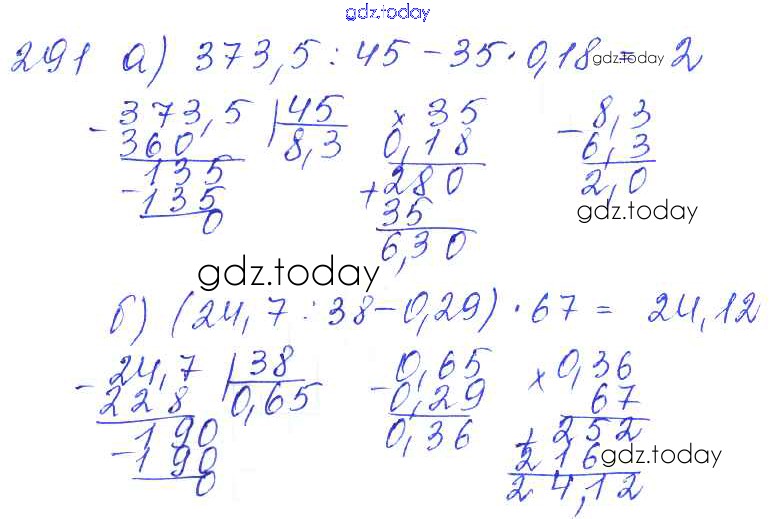 gdz.today
291 а) 373,5 : 45 - 35 · 0,18 = 2
gdz.today
- 373,5 | 45
360 8,3
- 135
135
0
× 35
0,18
+ 280
35
6,30
- 8,3
6,3
2,0
gdz.today
gdz.today
б) (24,7 : 38 - 0,29) · 67 = 24,12
- 24,7 | 38
228 0,65
- 190
190
0
- 0,65
0,29
0,36
× 0,36
67
+ 252
216
24,12
gdz.today